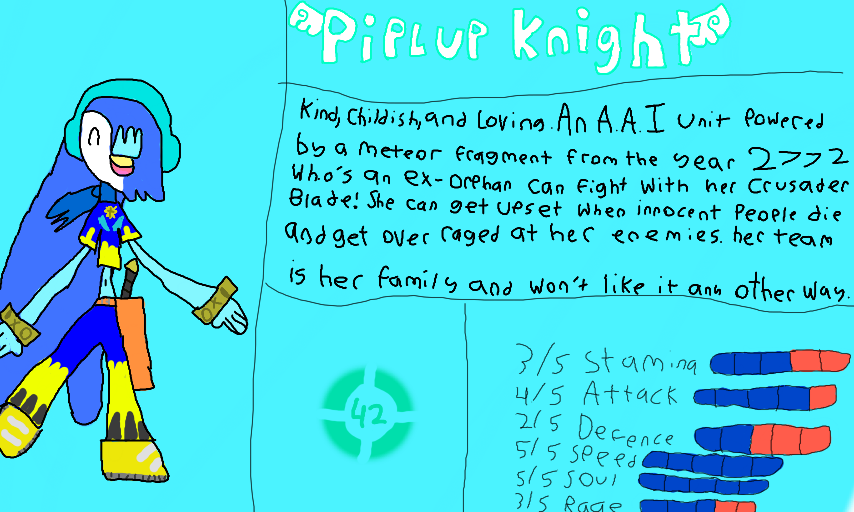 PIPLUP Knight
Kind, Childish, and Loving. An A.A.I unit powered
by a meteor fragment from the year 2>>2
Who's an ex-orphan can fight with her Crusader
Blade! She can get upset when innocent people die
and get over raged at her enemies. her team
is her family and won't like it any other way.
OXO
OXO
42
3/5 Stamina
4/5 Attack
2/5 Defence
5/5 Speed
5/5 Soul
3/5 Rage